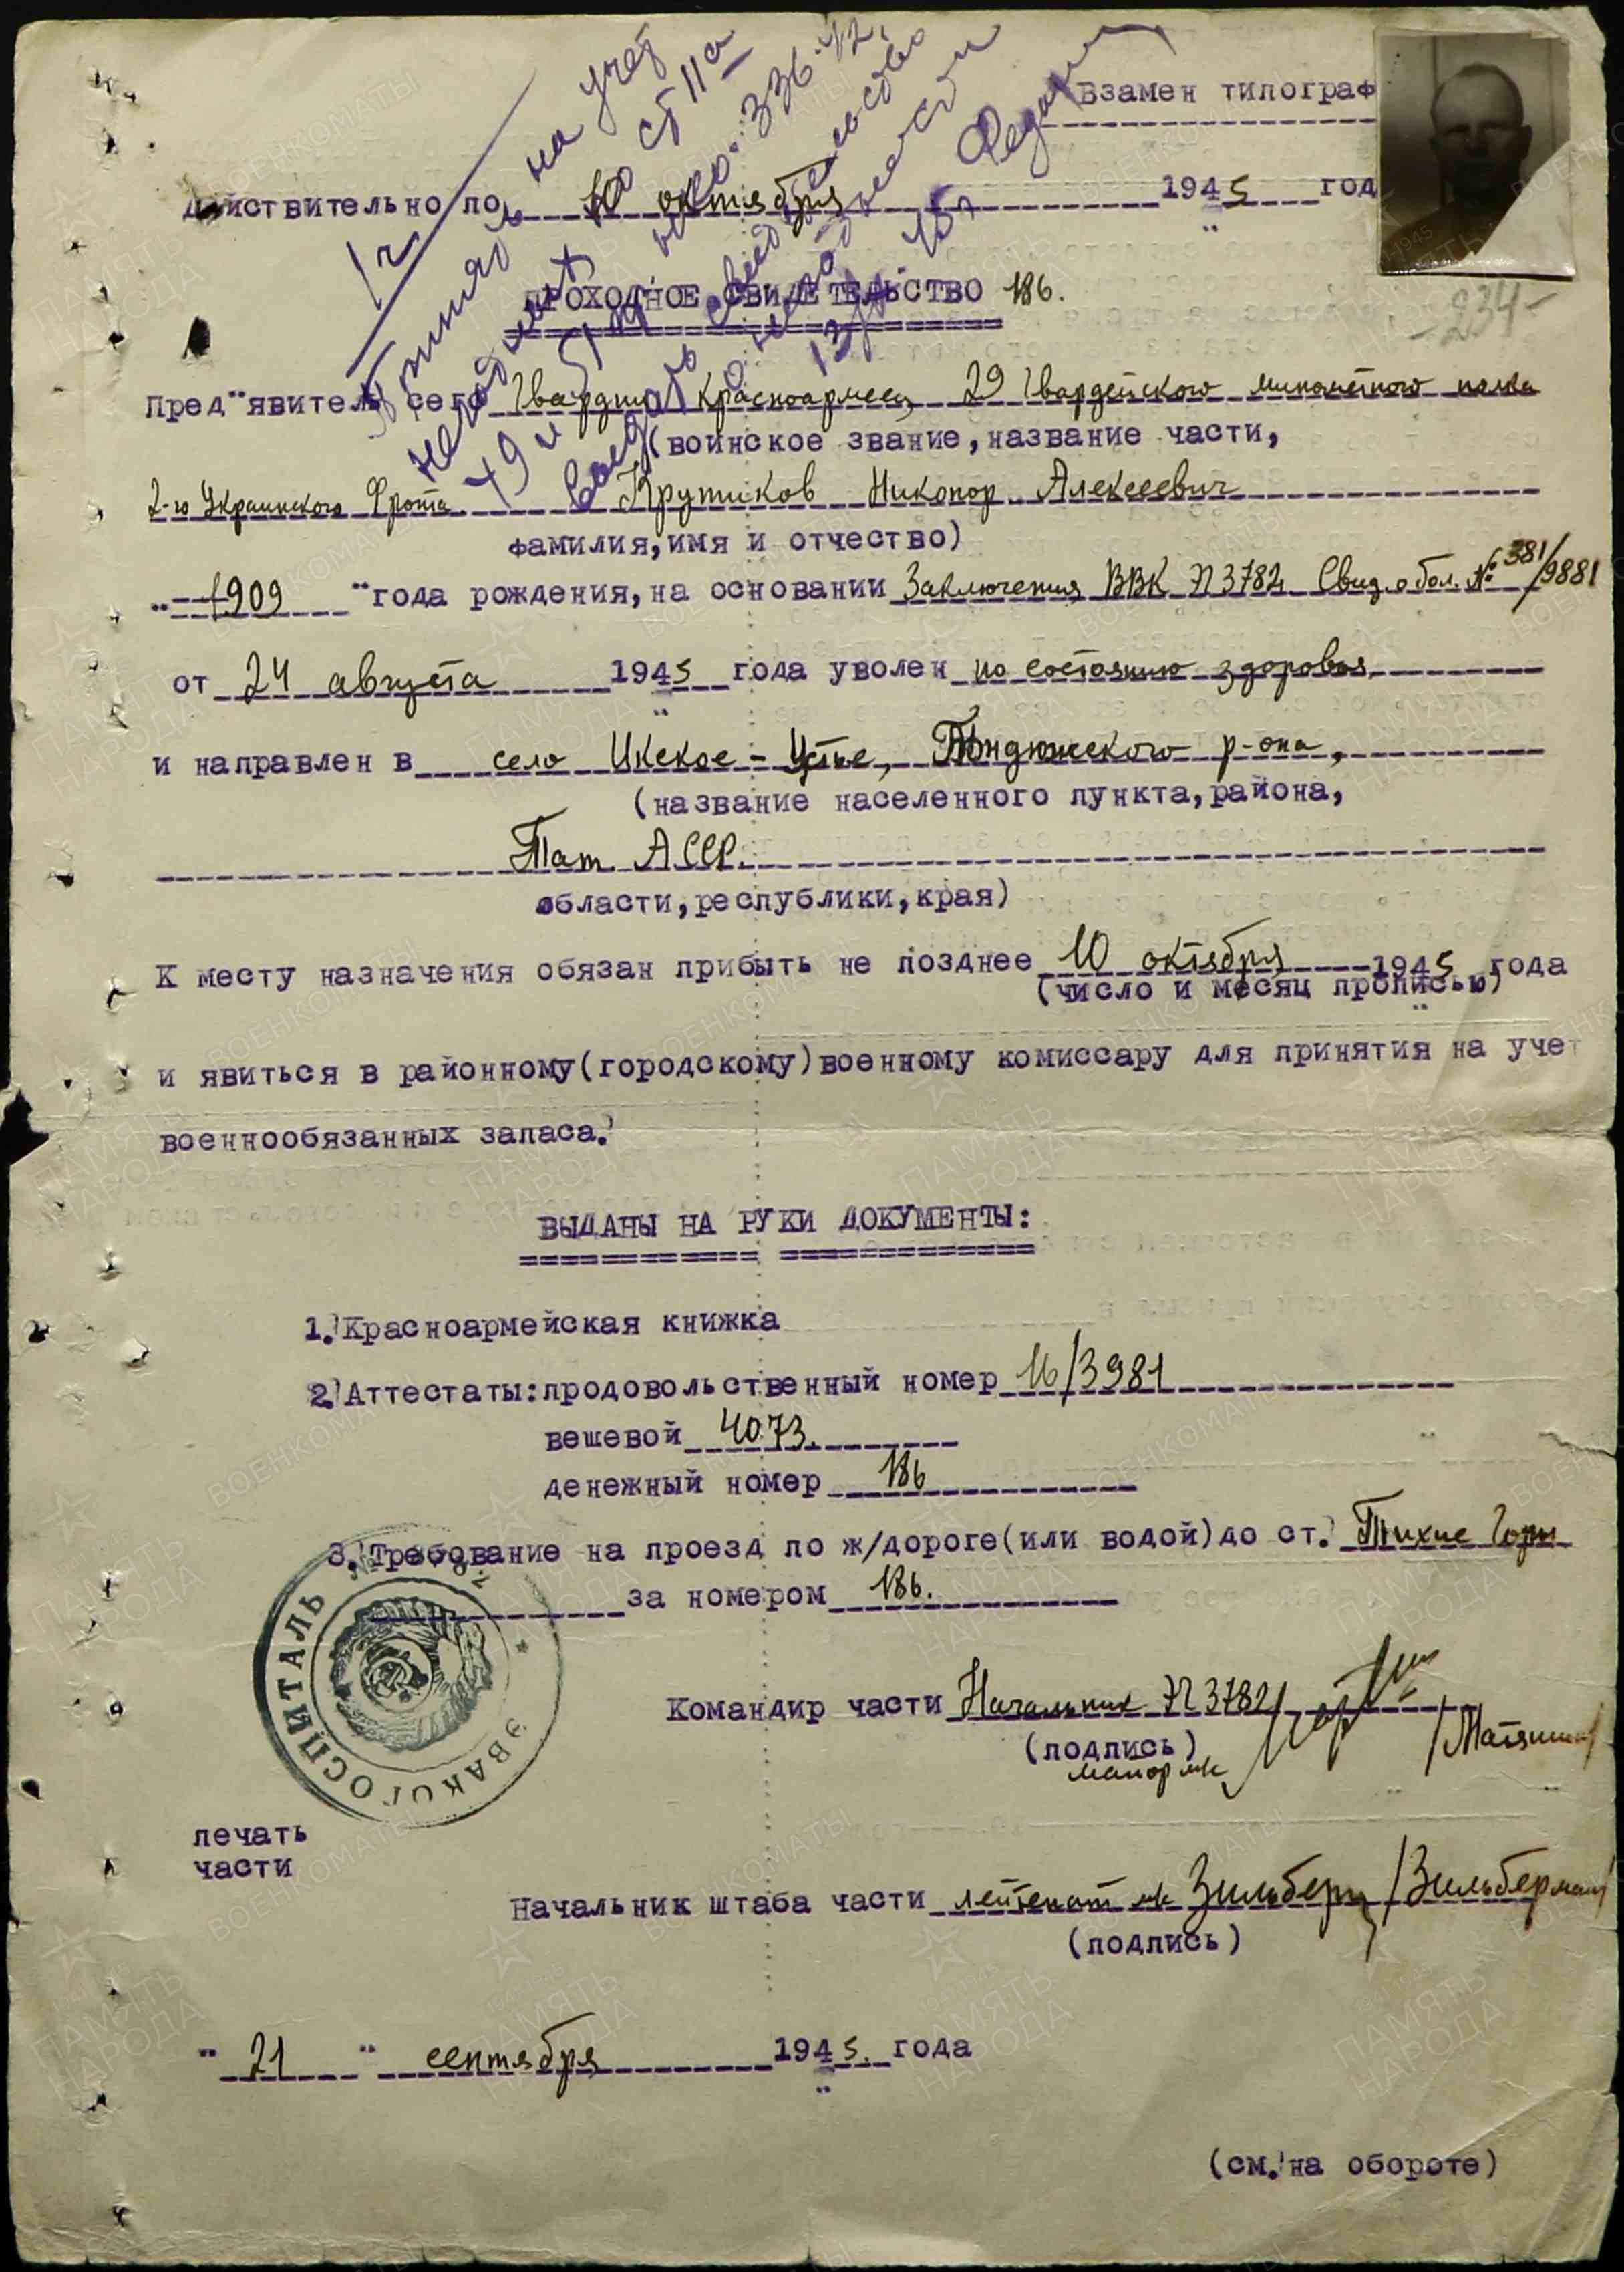 Взамен типограф
Действительно по 10 октября 1945 год
ПРОХОДНОЕ СВИДЕТЕЛЬСТВО 186.
-234-
Пред"явитель сего Гвардии Красноармеец 29 Гвардейского миномётного полка
(воинское звание, название части,
2-го Украинского Фронта Крупиков Никонор Алексеевич
фамилия, имя и отчество)
"1909" года рождения, на основании Заключения ВВК ЭГ 3782 Свид. о бол. № 381/9881
от 24 августа 1945 года уволен по состоянию здоровья
и направлен в село Икское-Устье, Бондюжского р-она,
(название населенного пункта, района,
Тат. АССР.
области, республики, края)
К месту назначения обязан прибыть не позднее 10 октября 1945 года
(число и месяц прописью)
и явиться в районному (городскому) военному комиссару для принятия на учет
военнообязанных запаса.
ВЫДАНЫ НА РУКИ ДОКУМЕНТЫ:
1. Красноармейская книжка
2. Аттестаты: продовольственный номер 16/3981
вешевой 4073.
денежный номер 186
3. Требование на проезд по ж/дороге (или водой) до ст. Тихие Горы
за номером 186.
ЭВАКОГОСПИТАЛЬ
Командир части Начальник ЭГ 3782
(подпись)
майор м/с
печать
части
Начальник штаба части лейтенант м/с Зильберм /Зильберман/
(подпись)
"21" сентября 1945. года
(см. на обороте)